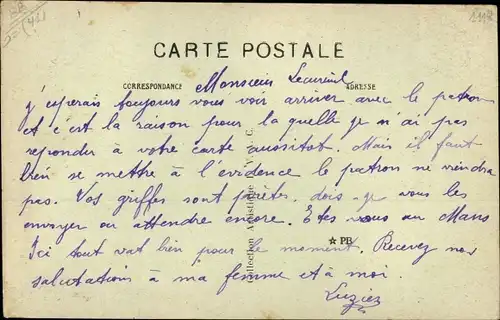 CARTE POSTALE
CORRESPONDANCE
ADRESSE
Monsieur Lecureuil
j'esperais toujours vous voir arriver avec le patron
et c'est la raison pour la quelle je n'ai pas
repondu à votre carte aussitot. Mais il faut
bien se mettre à l'evidence le patron ne viendra
pas. Vos griffes sont prêtes, dois-je vous les
envoyer ou attendre encore. Etes vous au Mans
Ici tout vat bien pour le moment. Recevez nos
salutations à ma femme et à moi.
Collection Artistique V. C.
★PB